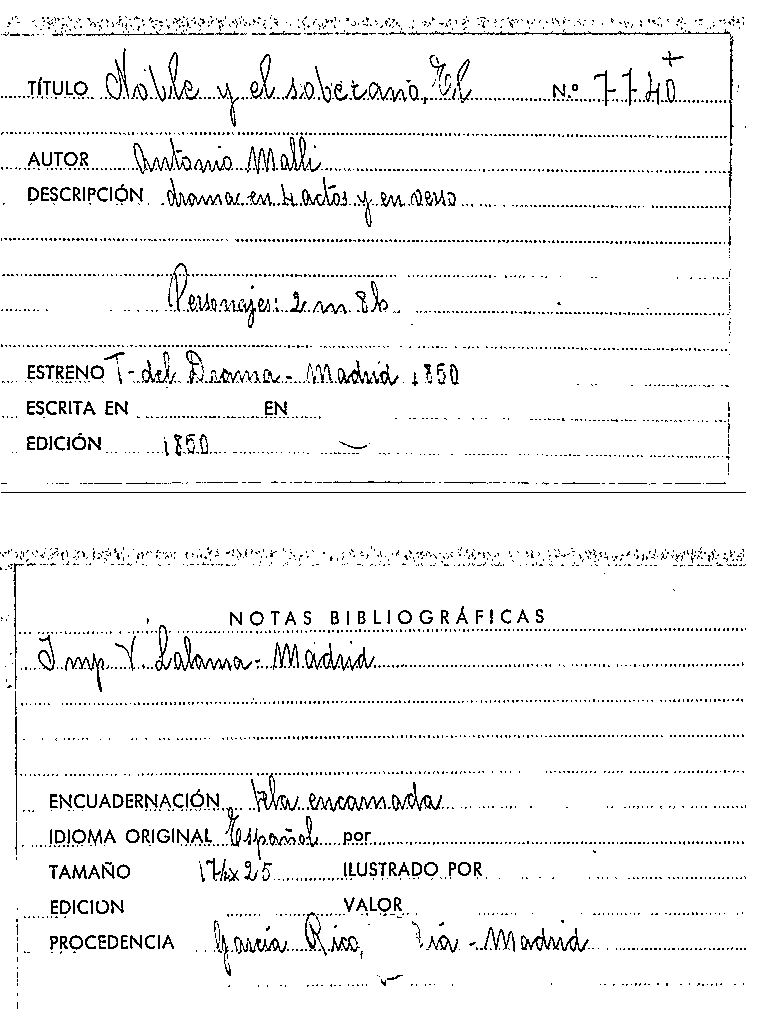 TÍTULO Noble y el soberano, El N.º 7740+
AUTOR Antonio Malli
DESCRIPCIÓN drama en 4 actos y en verso
Personajes: 2 m 8h
ESTRENO T. del Drama - Madrid 1850
ESCRITA EN EN
EDICIÓN 1850
NOTAS BIBLIOGRÁFICAS
Imp V. Lalama - Madrid
ENCUADERNACIÓN tela encarnada
IDIOMA ORIGINAL Español por
TAMAÑO 17½x25 ILUSTRADO POR
EDICION VALOR
PROCEDENCIA García Rico, - Madrid